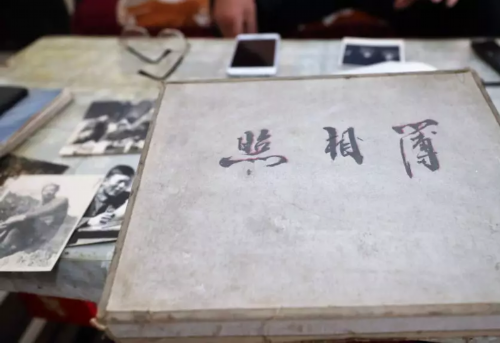 照相簿